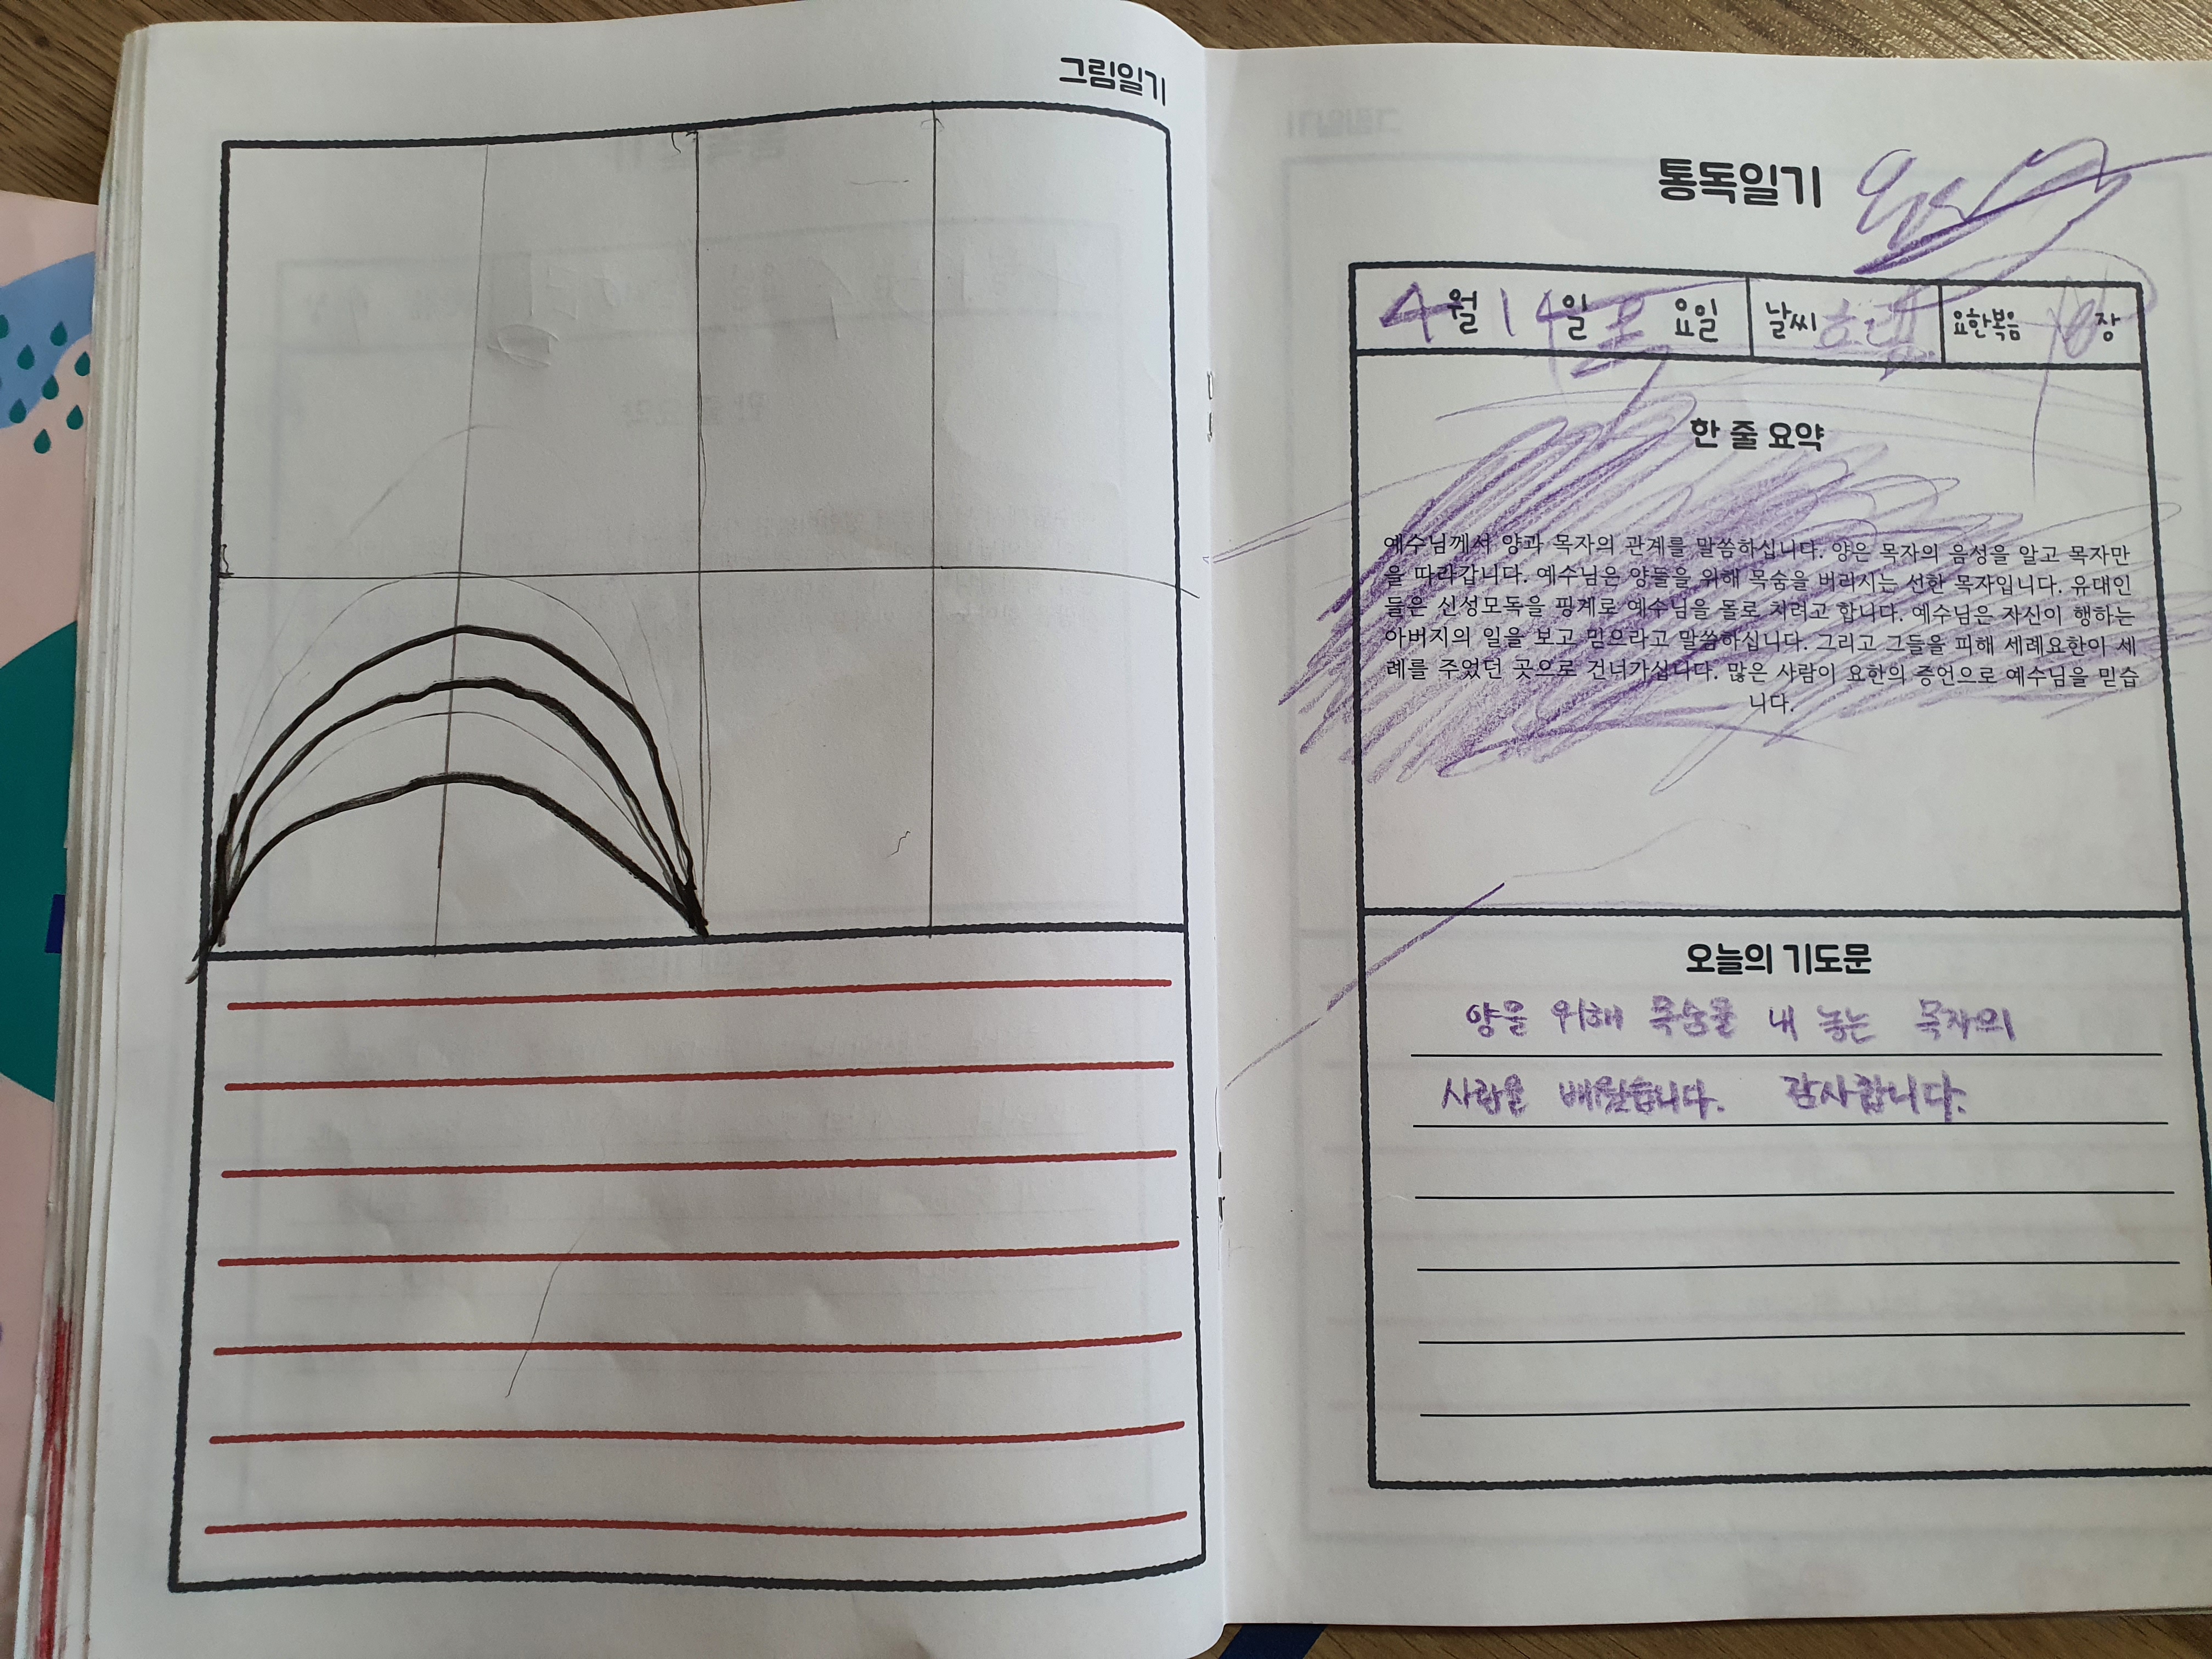 그림일기
통독일기
4월 14일 요일 날씨 흐림 요한복음 10장
한 줄 요약
예수님께서 양과 목자의 관계를 말씀하십니다. 양은 목자의 음성을 알고 목자만
을 따라갑니다. 예수님은 양들을 위해 목숨을 버리시는 선한 목자입니다. 유대인
들은 신성모독을 핑계로 예수님을 돌로 치려고 합니다. 예수님은 자신이 행하는
아버지의 일을 보고 믿으라고 말씀하십니다. 그리고 그들을 피해 세례요한이 세
례를 주었던 곳으로 건너가십니다. 많은 사람이 요한의 증언으로 예수님을 믿습
니다.
오늘의 기도문
양을 위해 목숨을 내 놓는 목자의
사랑을 배웠습니다. 감사합니다.